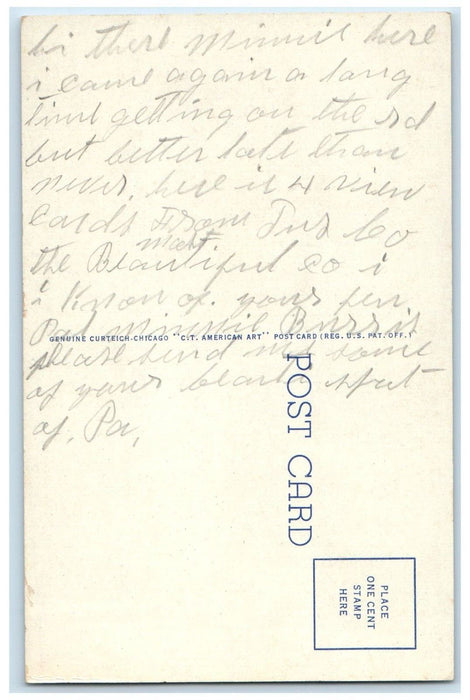 hi there Minnie here
i came again a long
time getting on the rd
but better late than
never. here is 4 view
cards From Tus Co
most
the Beautiful co i
i Know of. your fen
Pal Minnie
GENUINE CURTEICH-CHICAGO "C.T. AMERICAN ART" POST CARD (REG. U.S. PAT. OFF.)
please send me some
of your beauti spot
of, Pa,
POST CARD
PLACE
ONE CENT
STAMP
HERE